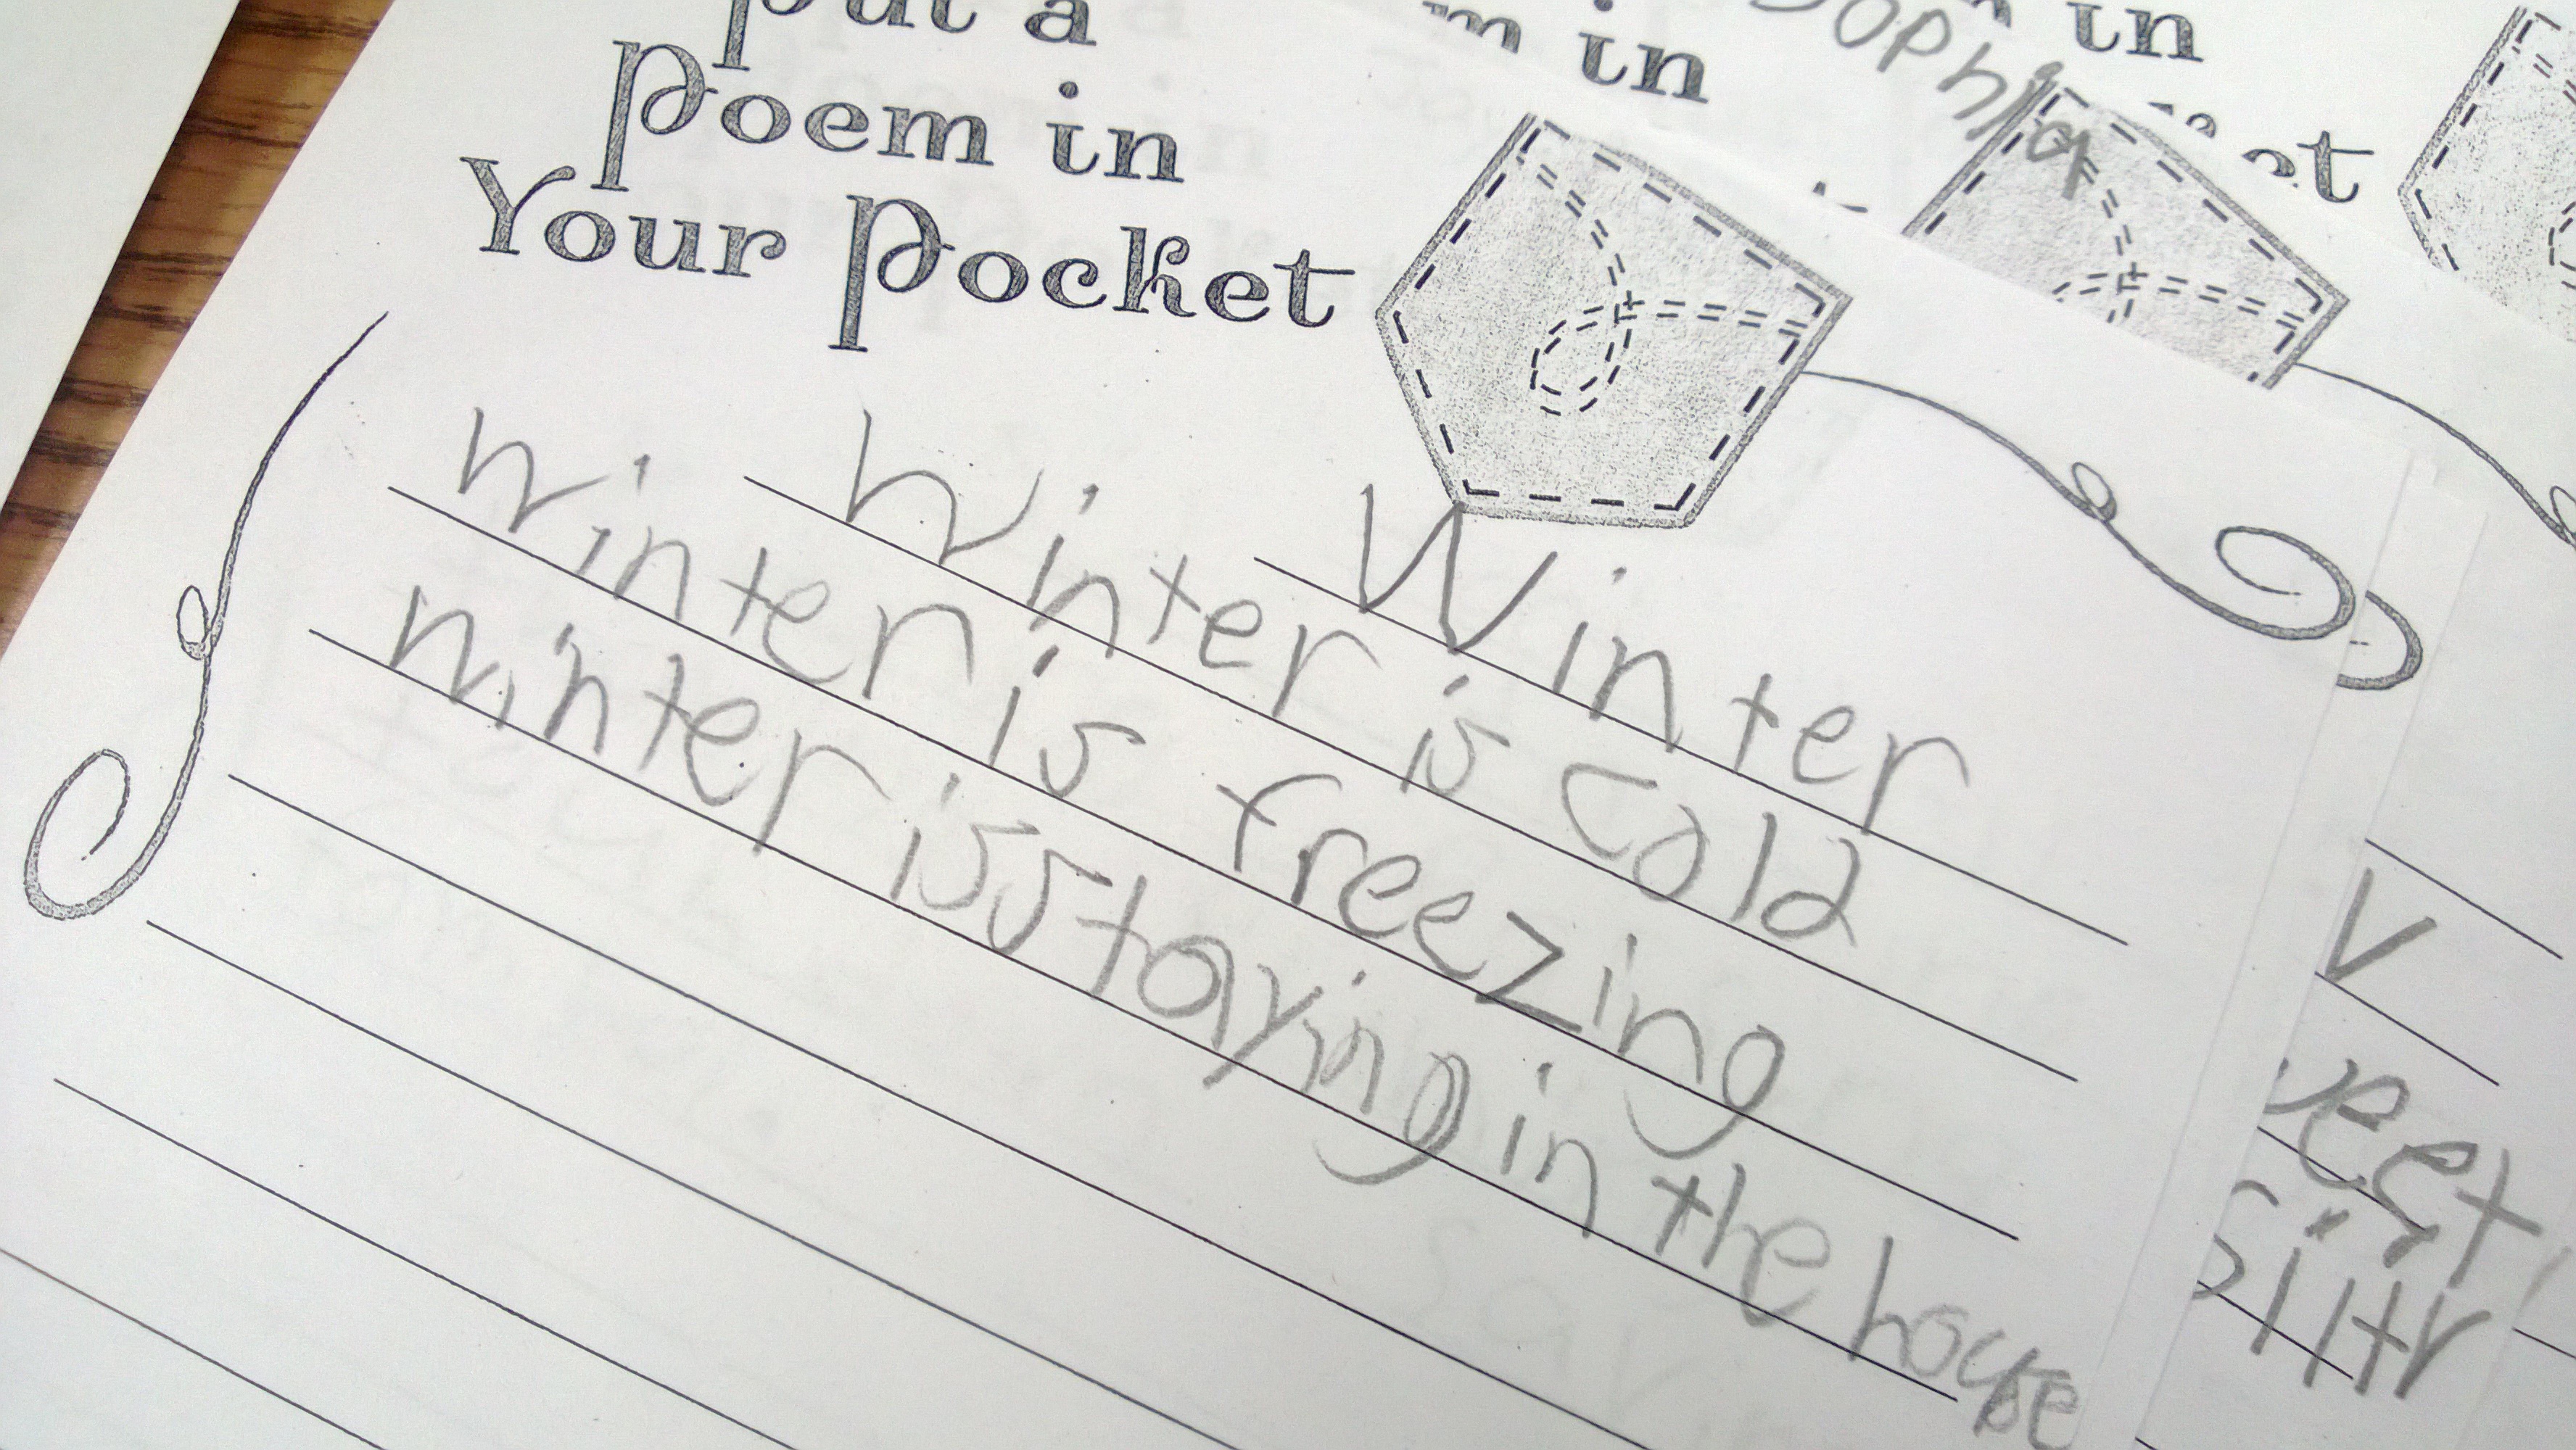 Put a
Poem in
Your Pocket
Winter
Winter is cold
Winter is freezing
Winter is staying in the house
m in
Sophia
in